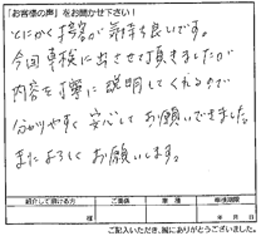 「お客様の声」をお聞かせ下さい!
とにかく接客が気持ち良いです。
今回車検に出させて頂きましたが
内容を丁寧に説明してくれるので
分かりやすく安心してお願いできました。
またよろしくお願いします。
紹介して頂ける方 ご関係 車種 車検期限
様 年 月 日
ご記入いただき、誠にありがとうございました。